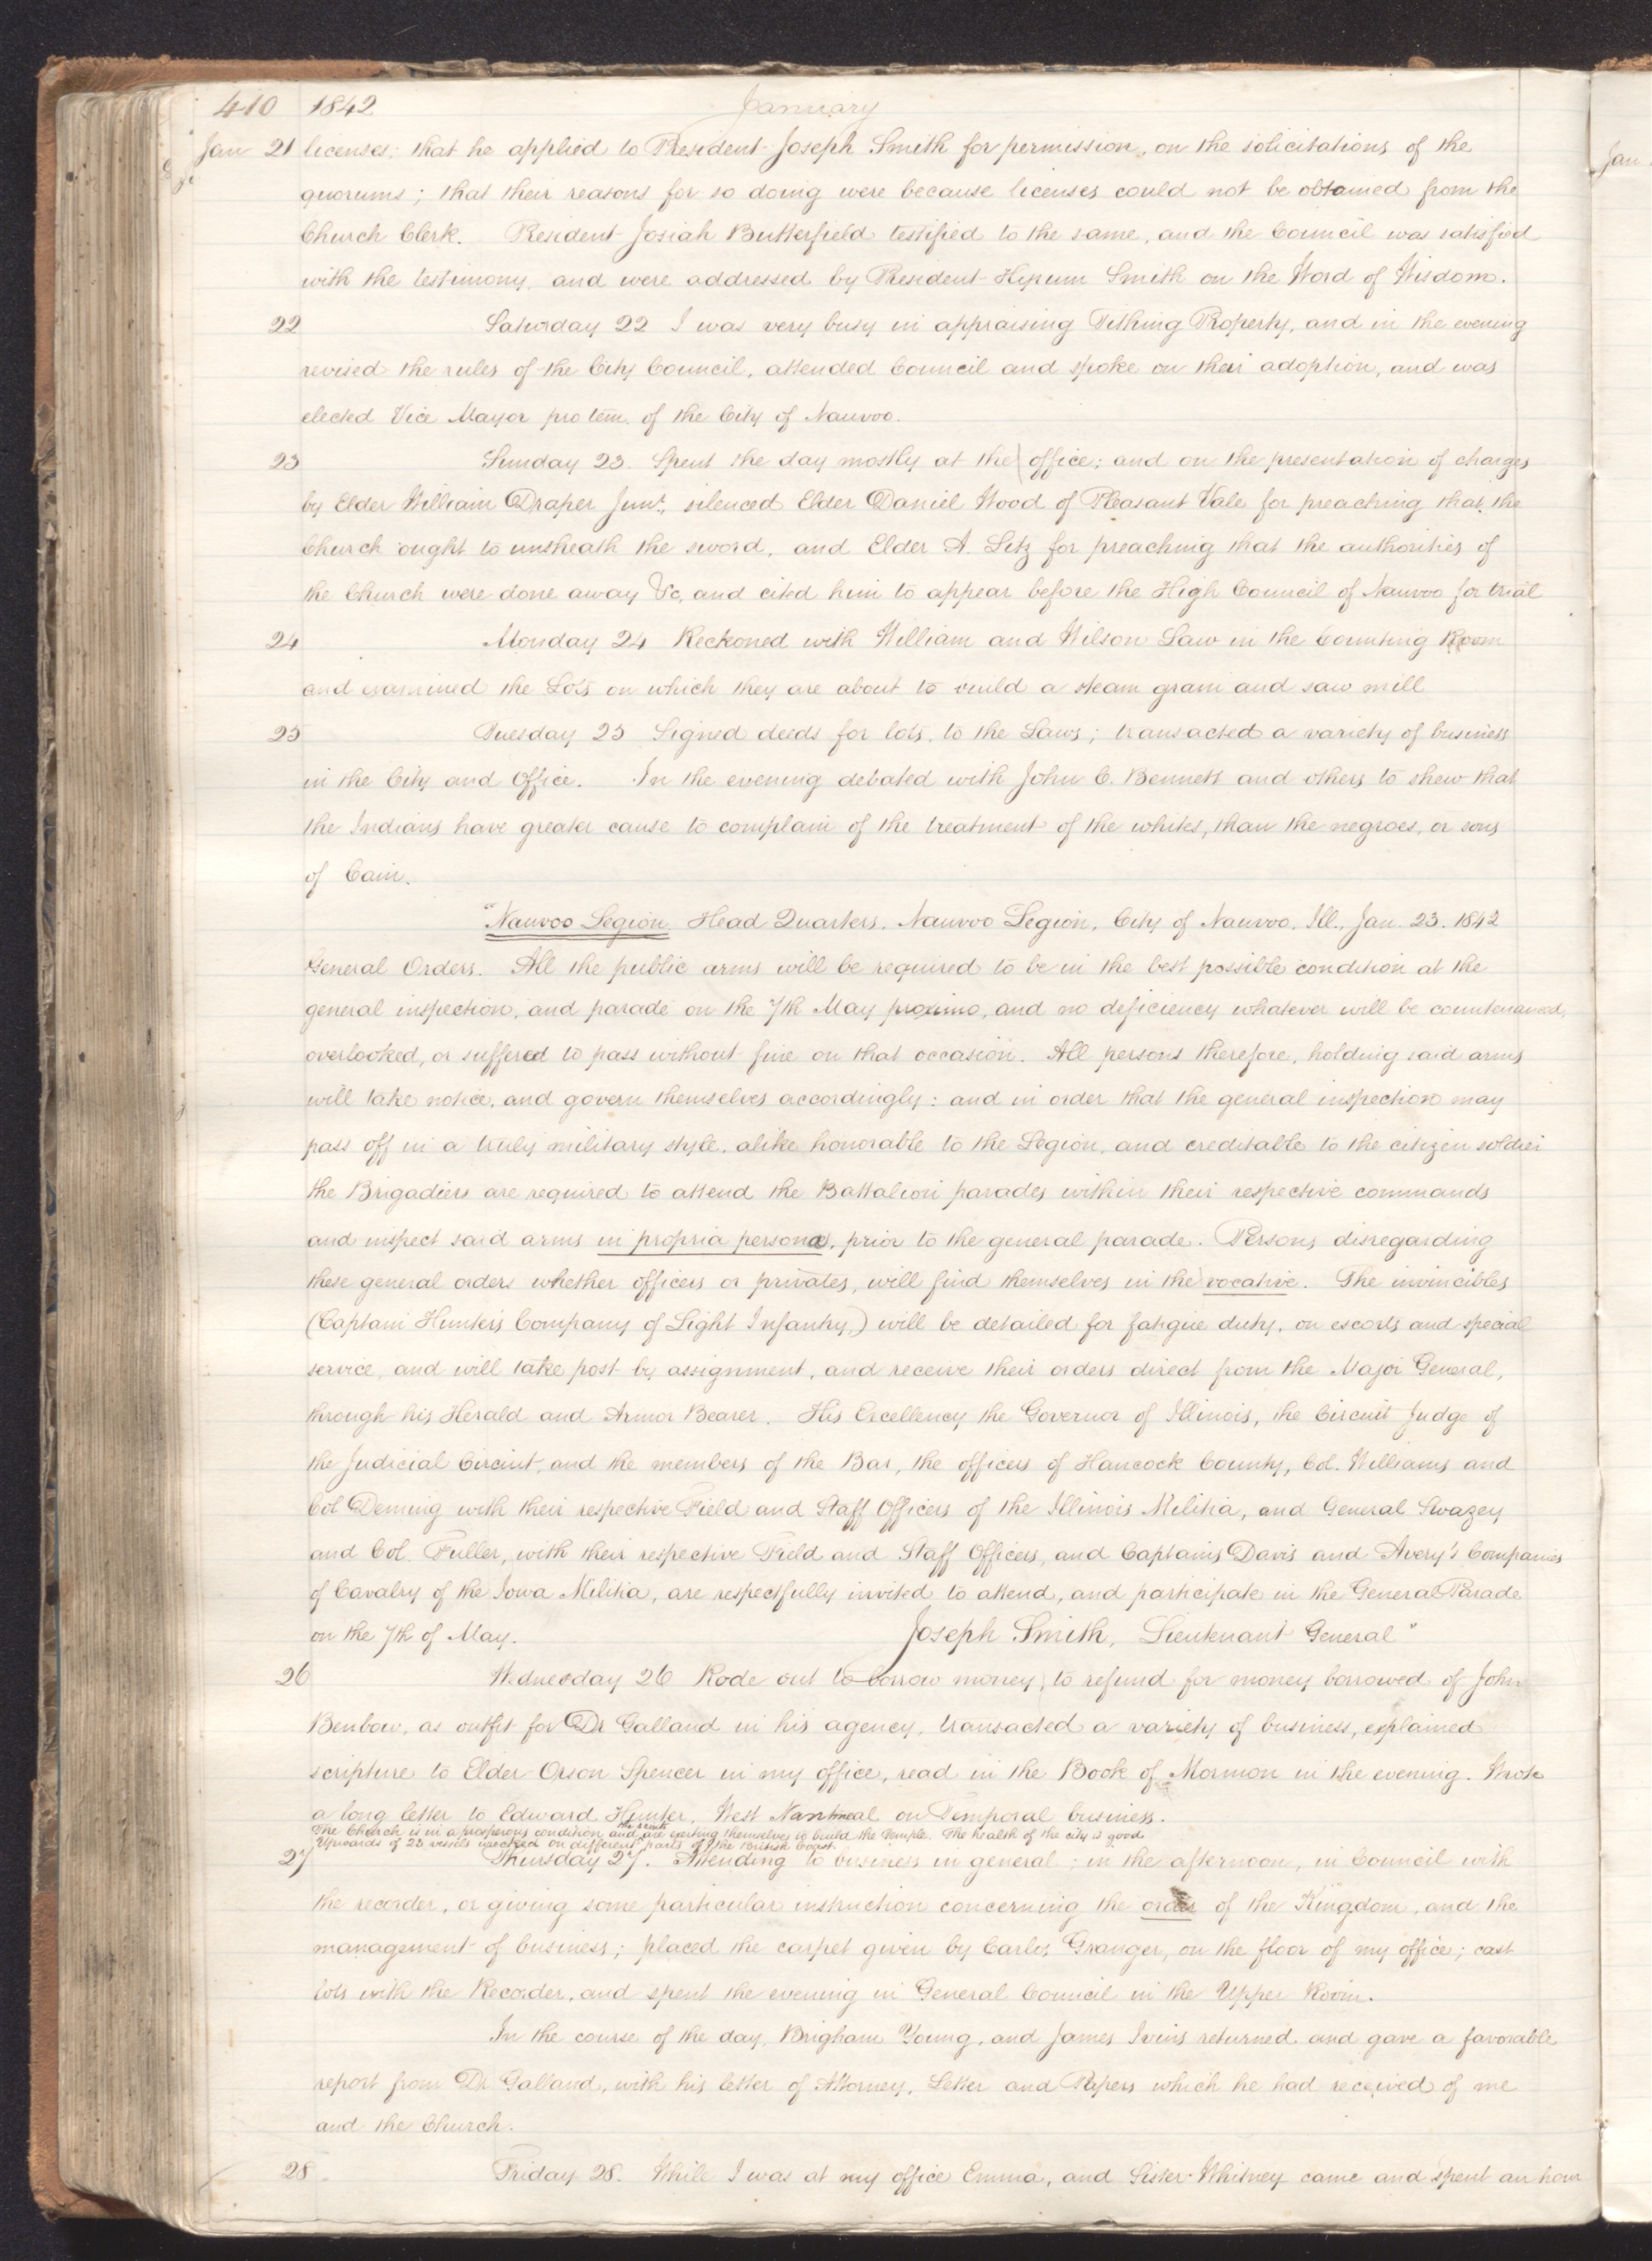 410 1842 January
Jan 21 licenses; that he applied to President Joseph Smith for permission, on the solicitations of the
quorums; that their reasons for so doing were because licenses could not be obtained from the
Church Clerk. President Josiah Butterfield testified to the same, and the Council was satisfied
with the testimony, and were addressed by President Hyrum Smith on the Word of Wisdom.
22 Saturday 22 I was very busy in appraising Tithing Property, and in the evening
revised the rules of the City Council, attended Council and spoke on their adoption, and was
elected Vice Mayor pro tem. of the City of Nauvoo.
23 Sunday 23. Spent the day mostly at the office; and on the presentation of charges
by Elder William Draper Junr., silenced Elder Daniel Wood of Pleasant Vale for preaching that the
Church ought to unsheath the sword, and Elder A. Litz for preaching that the authorities of
the Church were done away &c, and cited him to appear before the High Council of Nauvoo for trial
24 Monday 24 Reckoned with William and Wilson Law in the Counting Room
and examined the Lots on which they are about to build a steam grain and saw mill
25 Tuesday 25 Signed deeds for lots, to the Laws; transacted a variety of business
in the City and Office. In the evening debated with John C. Bennett and others to shew that
the Indians have greater cause to complain of the treatment of the whites, than the negroes, or sons
of Cain.
"Nauvoo Legion, Head Quarters, Nauvoo Legion, City of Nauvoo, Ill., Jan. 25. 1842
General Orders. All the public arms will be required to be in the best possible condition at the
general inspection, and parade on the 7th May proximo, and no deficiency whatever will be countenanced,
overlooked, or suffered to pass without fine on that occasion. All persons therefore, holding said arms
will take notice, and govern themselves accordingly: and in order that the general inspection may
pass off in a truly military style, alike honorable to the Legion, and creditable to the citizen soldier
the Brigadiers are required to attend the Battalion parades within their respective commands
and inspect said arms in propria persona, prior to the general parade. Persons disregarding
these general orders whether officers or privates, will find themselves in the vocative. The invincibles
(Captain Hunter's Company of Light Infantry,) will be detailed for fatigue duty, on escorts and special
service, and will take post by assignment, and receive their orders direct from the Major General,
through his Herald and Armor Bearer. His Excellency the Governor of Illinois, the Circuit Judge of
the Judicial Circuit, and the members of the Bar, the officers of Hancock County, Col. Williams and
Col Deming with their respective Field and Staff Officers of the Illinois Militia, and General Swazey
and Col. Fuller, with their respective Field and Staff Officers, and Captains Davis and Avery's Companies
of Cavalry of the Iowa Militia, are respectfully invited to attend, and participate in the General Parade
on the 7th of May. Joseph Smith, Lieutenant General"
26 Wednesday 26 Rode out to borrow money, to refund for money borrowed of John
Benbow, as outfit for Dr Galland in his agency, transacted a variety of business, explained
scripture to Elder Orson Spencer in my office, read in the Book of Mormon in the evening. Wrote
a long letter to Edward Hunter, West Nantmeal on Temporal business.
The Church is in a prosperous condition and the saints are exerting themselves to build the Temple. The health of the city is good
Upwards of 23 vessels wrecked on different parts of the British Coast.
27 Thursday 27. Attending to business in general; in the afternoon, in Council with
the recorder, or giving some particular instruction concerning the order of the Kingdom, and the
management of business; placed the carpet given by Carlos Granger, on the floor of my office; cast
lots with the Recorder, and spent the evening in General Council in the Upper Room.
In the course of the day, Brigham Young, and James Ivins returned and gave a favorable
report from Dr Galland, with his letter of Attorney, Letter and Papers which he had received of me
and the Church.
28 Friday 28. While I was at my office Emma, and Sister Whitney came and spent an hour
Jan